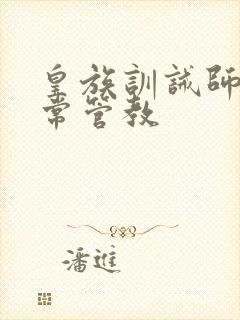 皇族訓誡師
常管教
潘進